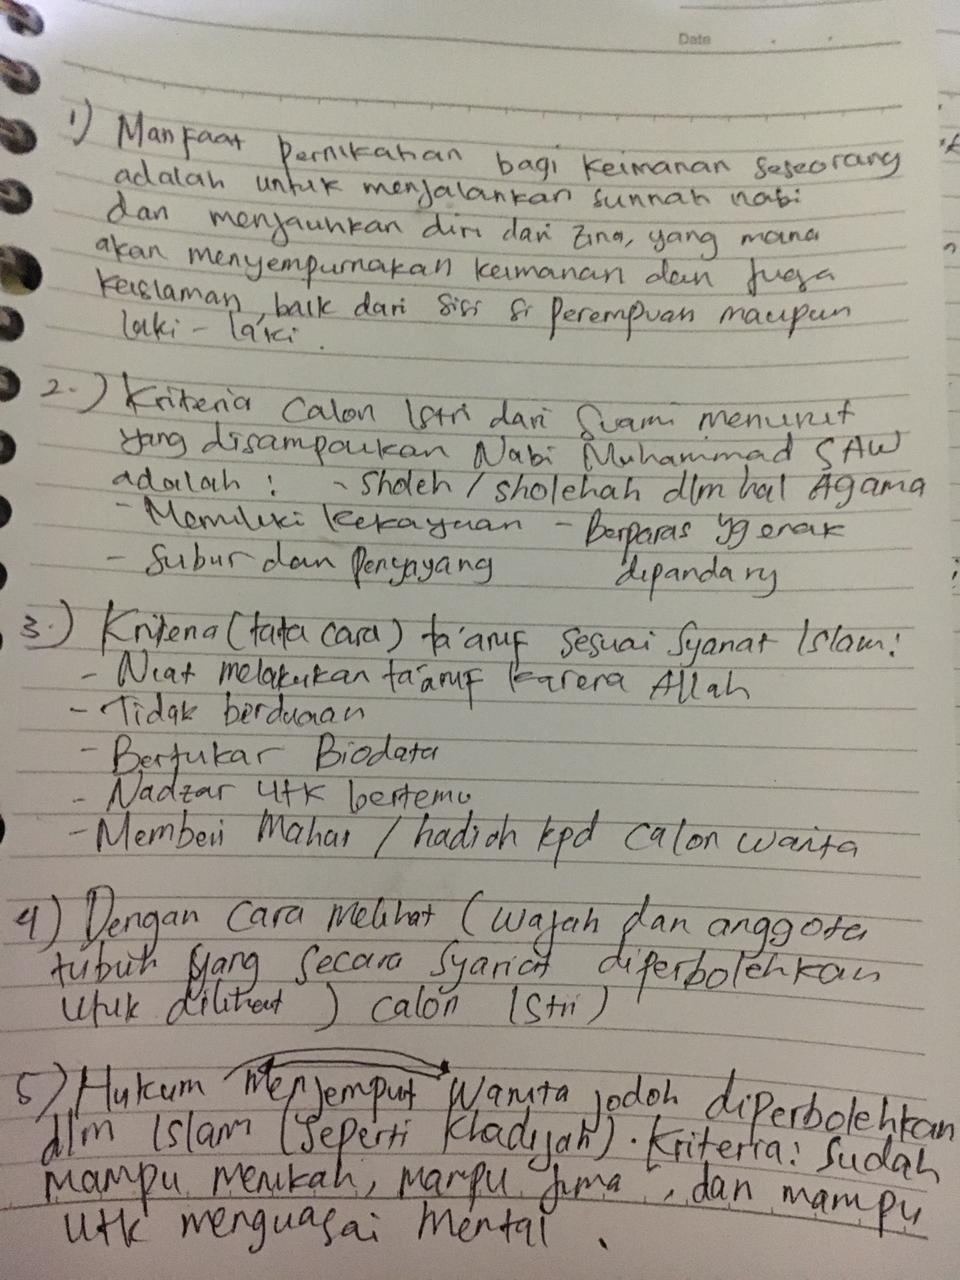 Date
1) Manfaat Pernikahan bagi keimanan seseorang
adalah untuk menjalankan sunnah nabi
dan menjauhkan diri dari Zina, yang mana
akan menyempurnakan keimanan dan juga
keislaman, baik dari sisi si perempuan maupun
laki-laki.
2.) Kriteria Calon Istri dari Suami menurut
yang disampaikan Nabi Muhammad SAW
adalah : - Sholeh / sholehah dlm hal Agama
- Memiliki kekayaan - Berparas yg enak
- Subur dan Penyayang dipandang
3.) Kriteria (tata cara) ta'aruf sesuai Syariat Islam:
- Niat melakukan ta'aruf karena Allah
- Tidak berduaan
- Bertukar Biodata
- Nadzar utk bertemu
- Memberi Mahar / hadiah kpd calon wanita
4) Dengan Cara Melihat (wajah dan anggota
tubuh yang secara syariat diperbolehkan
utuk dilihat) calon Istri)
5) Hukum Menjemput Wanita jodoh diperbolehkan
dlm Islam (seperti Khadijah). Kriteria: sudah
mampu menikah, mampu jima, dan mampu
utk menguasai Mental.